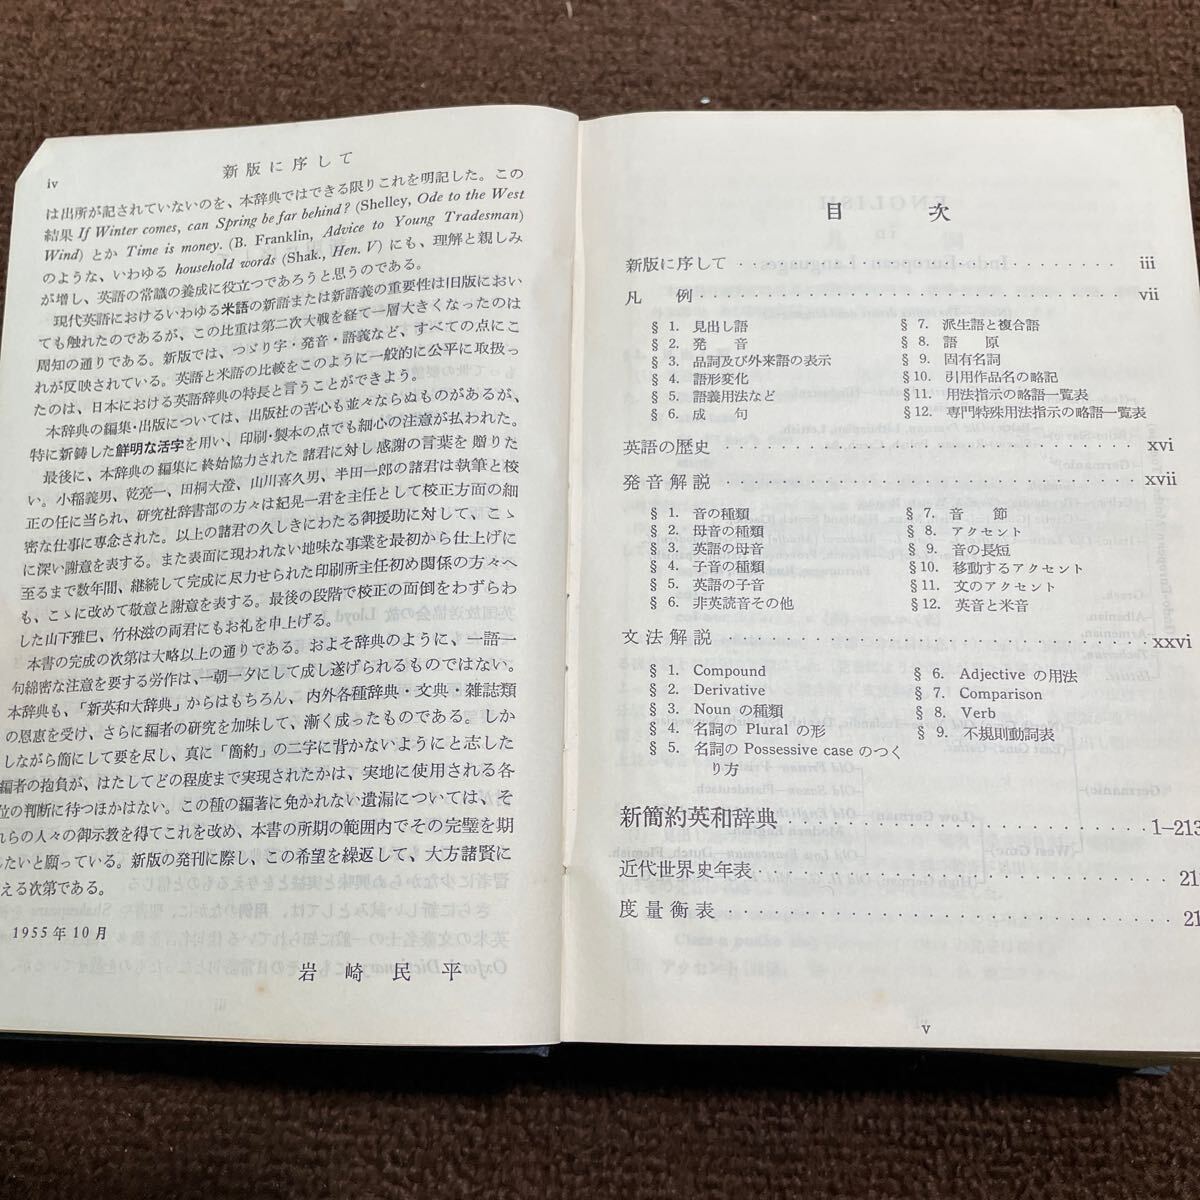 iv
新版に序して
は出所が記されていないのを、本辞典ではできる限りこれを明記した。この
結果 If Winter comes, can Spring be far behind? (Shelley, Ode to the West
Wind) とか Time is money. (B. Franklin, Advice to Young Tradesman)
のような、いわゆる household words (Shak., Hen. V) にも、理解と親しみ
が増し、英語の常識の養成に役立つであろうと思うのである。
現代英語におけるいわゆる米語の新語または新語義の重要性は旧版におい
ても触れたのであるが、この比重は第二次大戦を経て一層大きくなったのは
周知の通りである。新版では、つゞり字・発音・語義など、すべての点にこ
れが反映されている。英語と米語の比較をこのように一般的に公平に取扱っ
たのは、日本における英語辞典の特長と言うことができよう。
本辞典の編集・出版については、出版社の苦心も並々ならぬものがあるが、
特に新鋳した鮮明な活字を用い、印刷・製本の点でも細心の注意が払われた。
最後に、本辞典の編集に終始協力された諸君に対し感謝の言葉を贈りた
い。小稲義男、乾亮一、田桐大澄、山川喜久男、半田一郎の諸君は執筆と校
正の任に当られ、研究社辞書部の方々は紀晃一君を主任として校正方面の細
密な仕事に専念された。以上の諸君の久しきにわたる御援助に対して、こゝ
に深い謝意を表する。また表面に現われない地味な事業を最初から仕上げに
至るまで数年間、継続して完成に尽力せられた印刷所主任初め関係の方々へ
も、こゝに改めて敬意と謝意を表する。最後の段階で校正の面倒をわずらわ
した山下雅巳、竹林滋の両君にもお礼を申上げる。
本書の完成の次第は大略以上の通りである。およそ辞典のように、一語一
句綿密な注意を要する労作は、一朝一夕にして成し遂げられるものではない。
本辞典も、「新英和大辞典」からはもちろん、内外各種辞典・文典・雑誌類
の恩恵を受け、さらに編者の研究を加味して、漸く成ったものである。しか
しながら簡にして要を尽し、真に「簡約」の二字に背かないようにと志した
編者の抱負が、はたしてどの程度まで実現されたかは、実地に使用される各
位の判断に待つほかはない。この種の編著に免かれない遺漏については、そ
れらの人々の御示教を得てこれを改め、本書の所期の範囲内でその完璧を期
したいと願っている。新版の発刊に際し、この希望を繰返して、大方諸賢に
える次第である。
1955年10月
岩崎民平
目次
新版に序して iii
凡例 vii
§ 1. 見出し語
§ 2. 発音
§ 3. 品詞及び外来語の表示
§ 4. 語形変化
§ 5. 語義用法など
§ 6. 成句
§ 7. 派生語と複合語
§ 8. 語原
§ 9. 固有名詞
§10. 引用作品名の略記
§11. 用法指示の略語一覧表
§12. 専門特殊用法指示の略語一覧表
英語の歴史 xvi
発音解説 xvii
§ 1. 音の種類
§ 2. 母音の種類
§ 3. 英語の母音
§ 4. 子音の種類
§ 5. 英語の子音
§ 6. 非英読音その他
§ 7. 音節
§ 8. アクセント
§ 9. 音の長短
§10. 移動するアクセント
§11. 文のアクセント
§12. 英音と米音
文法解説 xxvi
§ 1. Compound
§ 2. Derivative
§ 3. Noun の種類
§ 4. 名詞の Plural の形
§ 5. 名詞の Possessive case のつく
り方
§ 6. Adjective の用法
§ 7. Comparison
§ 8. Verb
§ 9. 不規則動詞表
新簡約英和辞典 1–213
近代世界史年表 21
度量衡表 21
v